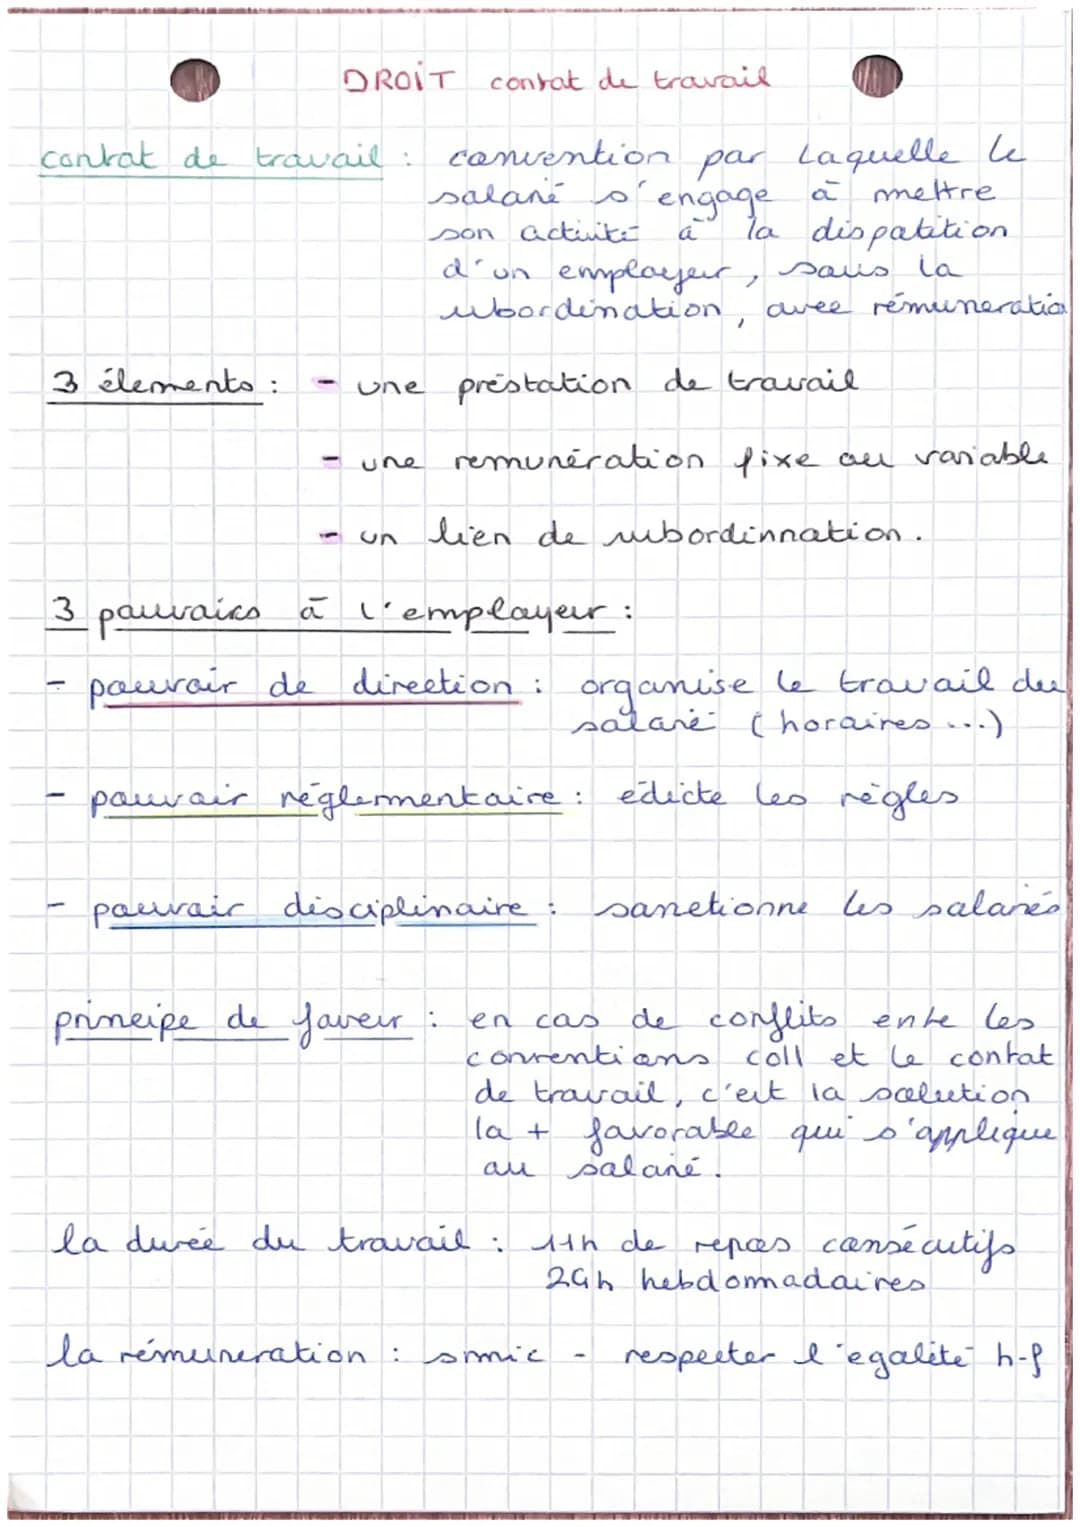 DROIT contrat de travail
contrat de travail : convention par laquelle le
salarié s'engage à mettre
son activité à la dispotition
d'un employeur, sous la
subordination, avec rémuneratio
3 élements : - une préstation de travail
- une remunération fixe ou variable
- un lien de subordinnation.
3 pouvoirs à l'employeur :
- pouvoir de direction : organise le travail du
salarié (horaires ...)
- pouvoir réglementaire : édicte les règles
- pouvoir disciplinaire : sanctionne les salariés
principe de faveur : en cas de conflits entre les
conventions coll et le contrat
de travail, c'est la solution
la + favorable qui s'applique
au salarié.
la durée du travail : 11h de repos consécutifs
24h hebdomadaires
la rémuneration : smic - respecter l'egalité h-f